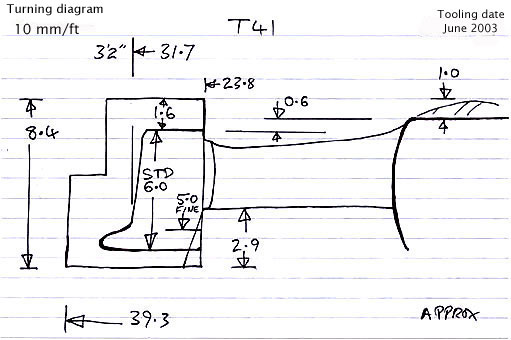 Turning diagram
10 mm/ft
T41
Tooling date
June 2003
3'2" 31.7
23.8
1.0
0.6
1.6
8.4
STD
6.0
5.0
FINE
2.9
39.3
APPROX